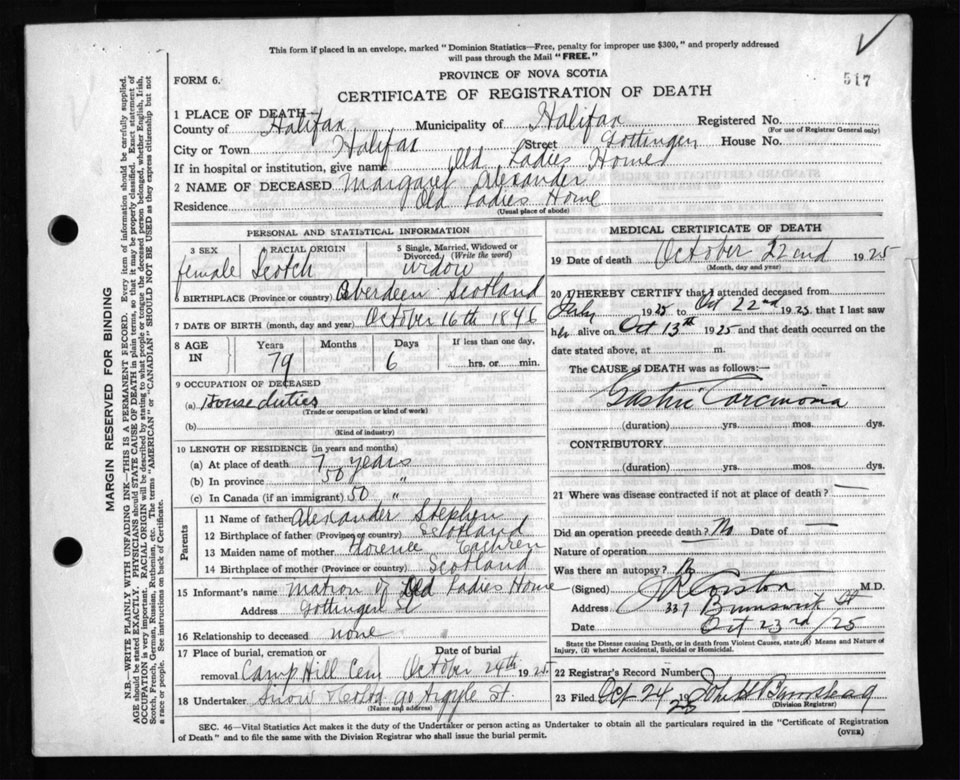 This form if placed in an envelope, marked "Dominion Statistics—Free, penalty for improper use $300," and properly addressed
will pass through the Mail "FREE."
517
FORM 6.
PROVINCE OF NOVA SCOTIA
CERTIFICATE OF REGISTRATION OF DEATH
1 PLACE OF DEATH—
County of Halifax Municipality of Halifax Registered No.
(For use of Registrar General only)
City or Town Halifax Street Gottingen House No.
If in hospital or institution, give name Old Ladies Home
2 NAME OF DECEASED Margaret Alexander
Residence Old Ladies Home
(Usual place of abode)
PERSONAL AND STATISTICAL INFORMATION
3 SEX 4 RACIAL ORIGIN 5 Single, Married, Widowed or
Divorced (Write the word)
female Scotch widow
6 BIRTHPLACE (Province or country) Aberdeen Scotland
7 DATE OF BIRTH (month, day and year) October 16th 1846
8 AGE IN Years Months Days If less than one day,
79 6 hrs. or min.
9 OCCUPATION OF DECEASED
(a) House duties
(Trade or occupation or kind of work)
(b)
(Kind of industry)
10 LENGTH OF RESIDENCE (in years and months)
(a) At place of death 7 years
(b) In province 50 "
(c) In Canada (if an immigrant) 50 "
Parents
11 Name of father Alexander Stephen
12 Birthplace of father (Province or country) Scotland
13 Maiden name of mother Florence Cochren
14 Birthplace of mother (Province or country) Scotland
15 Informant's name Matron of Old Ladies Home
Address Gottingen St
16 Relationship to deceased none
17 Place of burial, cremation or Date of burial
removal Camp Hill Cem October 24th 1925
18 Undertaker Snow & Co Ltd 90 Argyle St.
(Name and address)
MEDICAL CERTIFICATE OF DEATH
19 Date of death October 22nd 1925
(Month, day and year)
20 I HEREBY CERTIFY that I attended deceased from
July 1925 to Oct 22nd 1925 that I last saw
her alive on Oct 13th 1925 and that death occurred on the
date stated above, at m.
The CAUSE of DEATH was as follows:—
Gastric Carcinoma
(duration) yrs. mos. dys.
CONTRIBUTORY
(duration) yrs. mos. dys.
21 Where was disease contracted if not at place of death? —
Did an operation precede death? No Date of —
Nature of operation —
Was there an autopsy? No
(Signed) Corston M.D.
Address 337 Brunswick St
Date Oct 23rd /25
State the Disease causing Death, or in death from Violent Causes, state (1) Means and Nature of
Injury, (2) whether Accidental, Suicidal or Homicidal.
22 Registrar's Record Number
23 Filed Oct 24 1925 John
(Division Registrar)
SEC. 46—Vital Statistics Act makes it the duty of the Undertaker or person acting as Undertaker to obtain all the particulars required in the "Certificate of Registration
of Death" and to file the same with the Division Registrar who shall issue the burial permit.
(OVER)
MARGIN RESERVED FOR BINDING
N.B.—WRITE PLAINLY WITH UNFADING INK—THIS IS A PERMANENT RECORD. Every item of information should be carefully supplied.
AGE should be stated EXACTLY. PHYSICIANS should STATE CAUSE OF DEATH in plain terms, so that it may be properly classified. Exact statement of
OCCUPATION is very important. RACIAL ORIGIN will be described by stating to what people or tongue the deceased person belonged, whether English, Irish,
Scotch, French, German, Russian, Ruthenian, etc. The terms "AMERICAN" or "CANADIAN" SHOULD NOT BE USED as they express citizenship but not
a race or people. See instructions on back of Certificate.